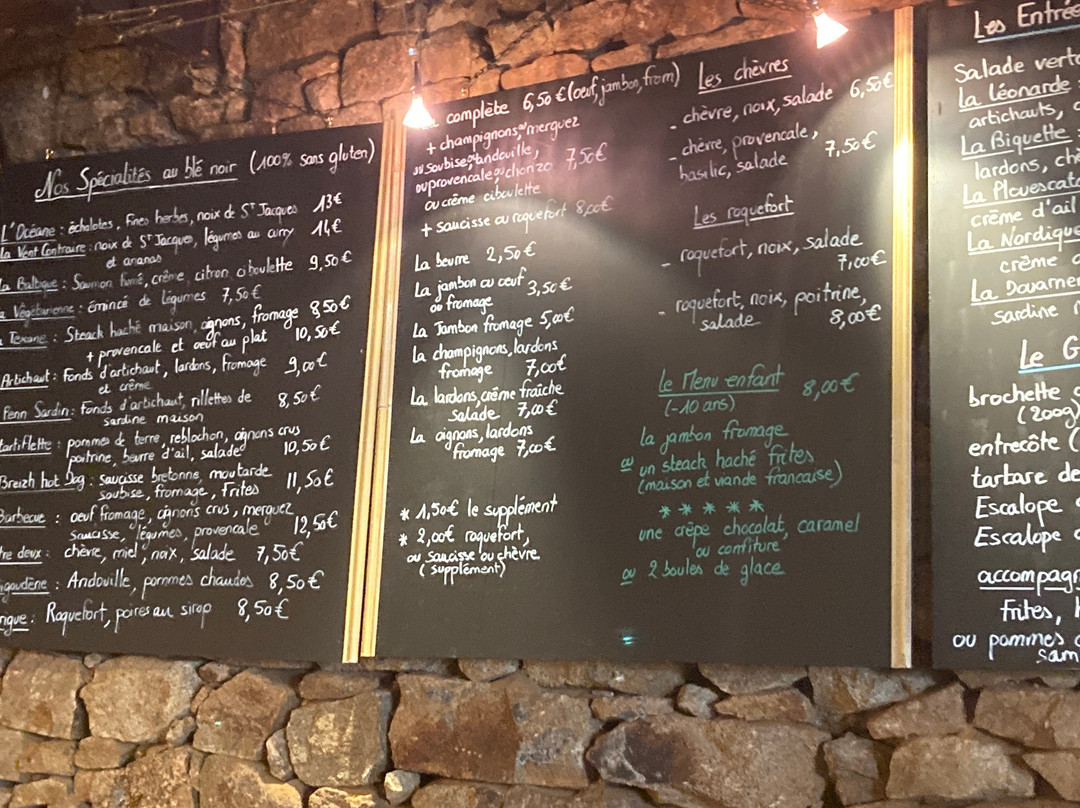 Nos Spécialités au blé noir (100% sans gluten)
L'Océane : échalotes, fines herbes, noix de St Jacques 13€
La Vent Contraire : noix de St Jacques, légumes au curry 14€
et ananas
La Baltique : Saumon fumé, crème, citron ciboulette 9,50€
Végétarienne : émincé de légumes 7,50€
Texane : Steack haché maison, oignons, fromage 8,50€
+ provencale et oeuf au plat 10,50€
Artichaut : fonds d'artichaut, lardons, fromage 9,00€
et crème
Penn Sardin : fonds d'artichaut, rillettes de 8,50€
sardine maison
tartiflette : pommes de terre, reblochon, oignons crus
poitrine, beurre d'ail, salade 10,50€
Breizh hot Dog : saucisse bretonne, moutarde
soubise, fromage, frites 11,50€
Barbecue : oeuf fromage, oignons crus, merguez
saucisse, légumes, provencale 12,50€
tre deux : chèvre, miel, noix, salade 7,50€
igoudène : Andouille, pommes chaudes 8,50€
ngue : Roquefort, poires au sirop 8,50€
complète 6,50€ (oeuf, jambon, from)
+ champignons ou merguez
ou Soubise ou andouille,
ou provencale ou chorizo 7,50€
ou crème ciboulette
+ saucisse ou roquefort 8,00€
La beurre 2,50€
La jambon ou oeuf
ou fromage 3,50€
La Jambon fromage 5,00€
La champignons, lardons
fromage 7,00€
La lardons, crème fraîche
Salade 7,00€
La oignons, lardons
fromage 7,00€
* 1,50€ le supplément
* 2,00€ roquefort,
ou saucisse ou chèvre
(supplément)
Les chèvres
- chèvre, noix, salade 6,50€
- chèvre, provencale,
basilic, salade 7,50€
Les roquefort
- roquefort, noix, salade
7,00€
- roquefort, noix, poitrine,
salade 8,00€
Le Menu enfant 8,00€
(-10 ans)
la jambon fromage
ou un steack haché frites
(maison et viande francaise)
* * * * *
une crêpe chocolat, caramel
ou confiture
ou 2 boules de glace
Les Entrée
Salade verte
La léonarde :
artichauts,
La Biquette :
lardons, chè
La Plouescat
crème d'ail
La Nordique
crème
La Douarnen
sardine
Le G
brochette
(200g)
entrecôte (
tartare de
Escalope
Escalope
accompagn
frites,
ou pommes
sam